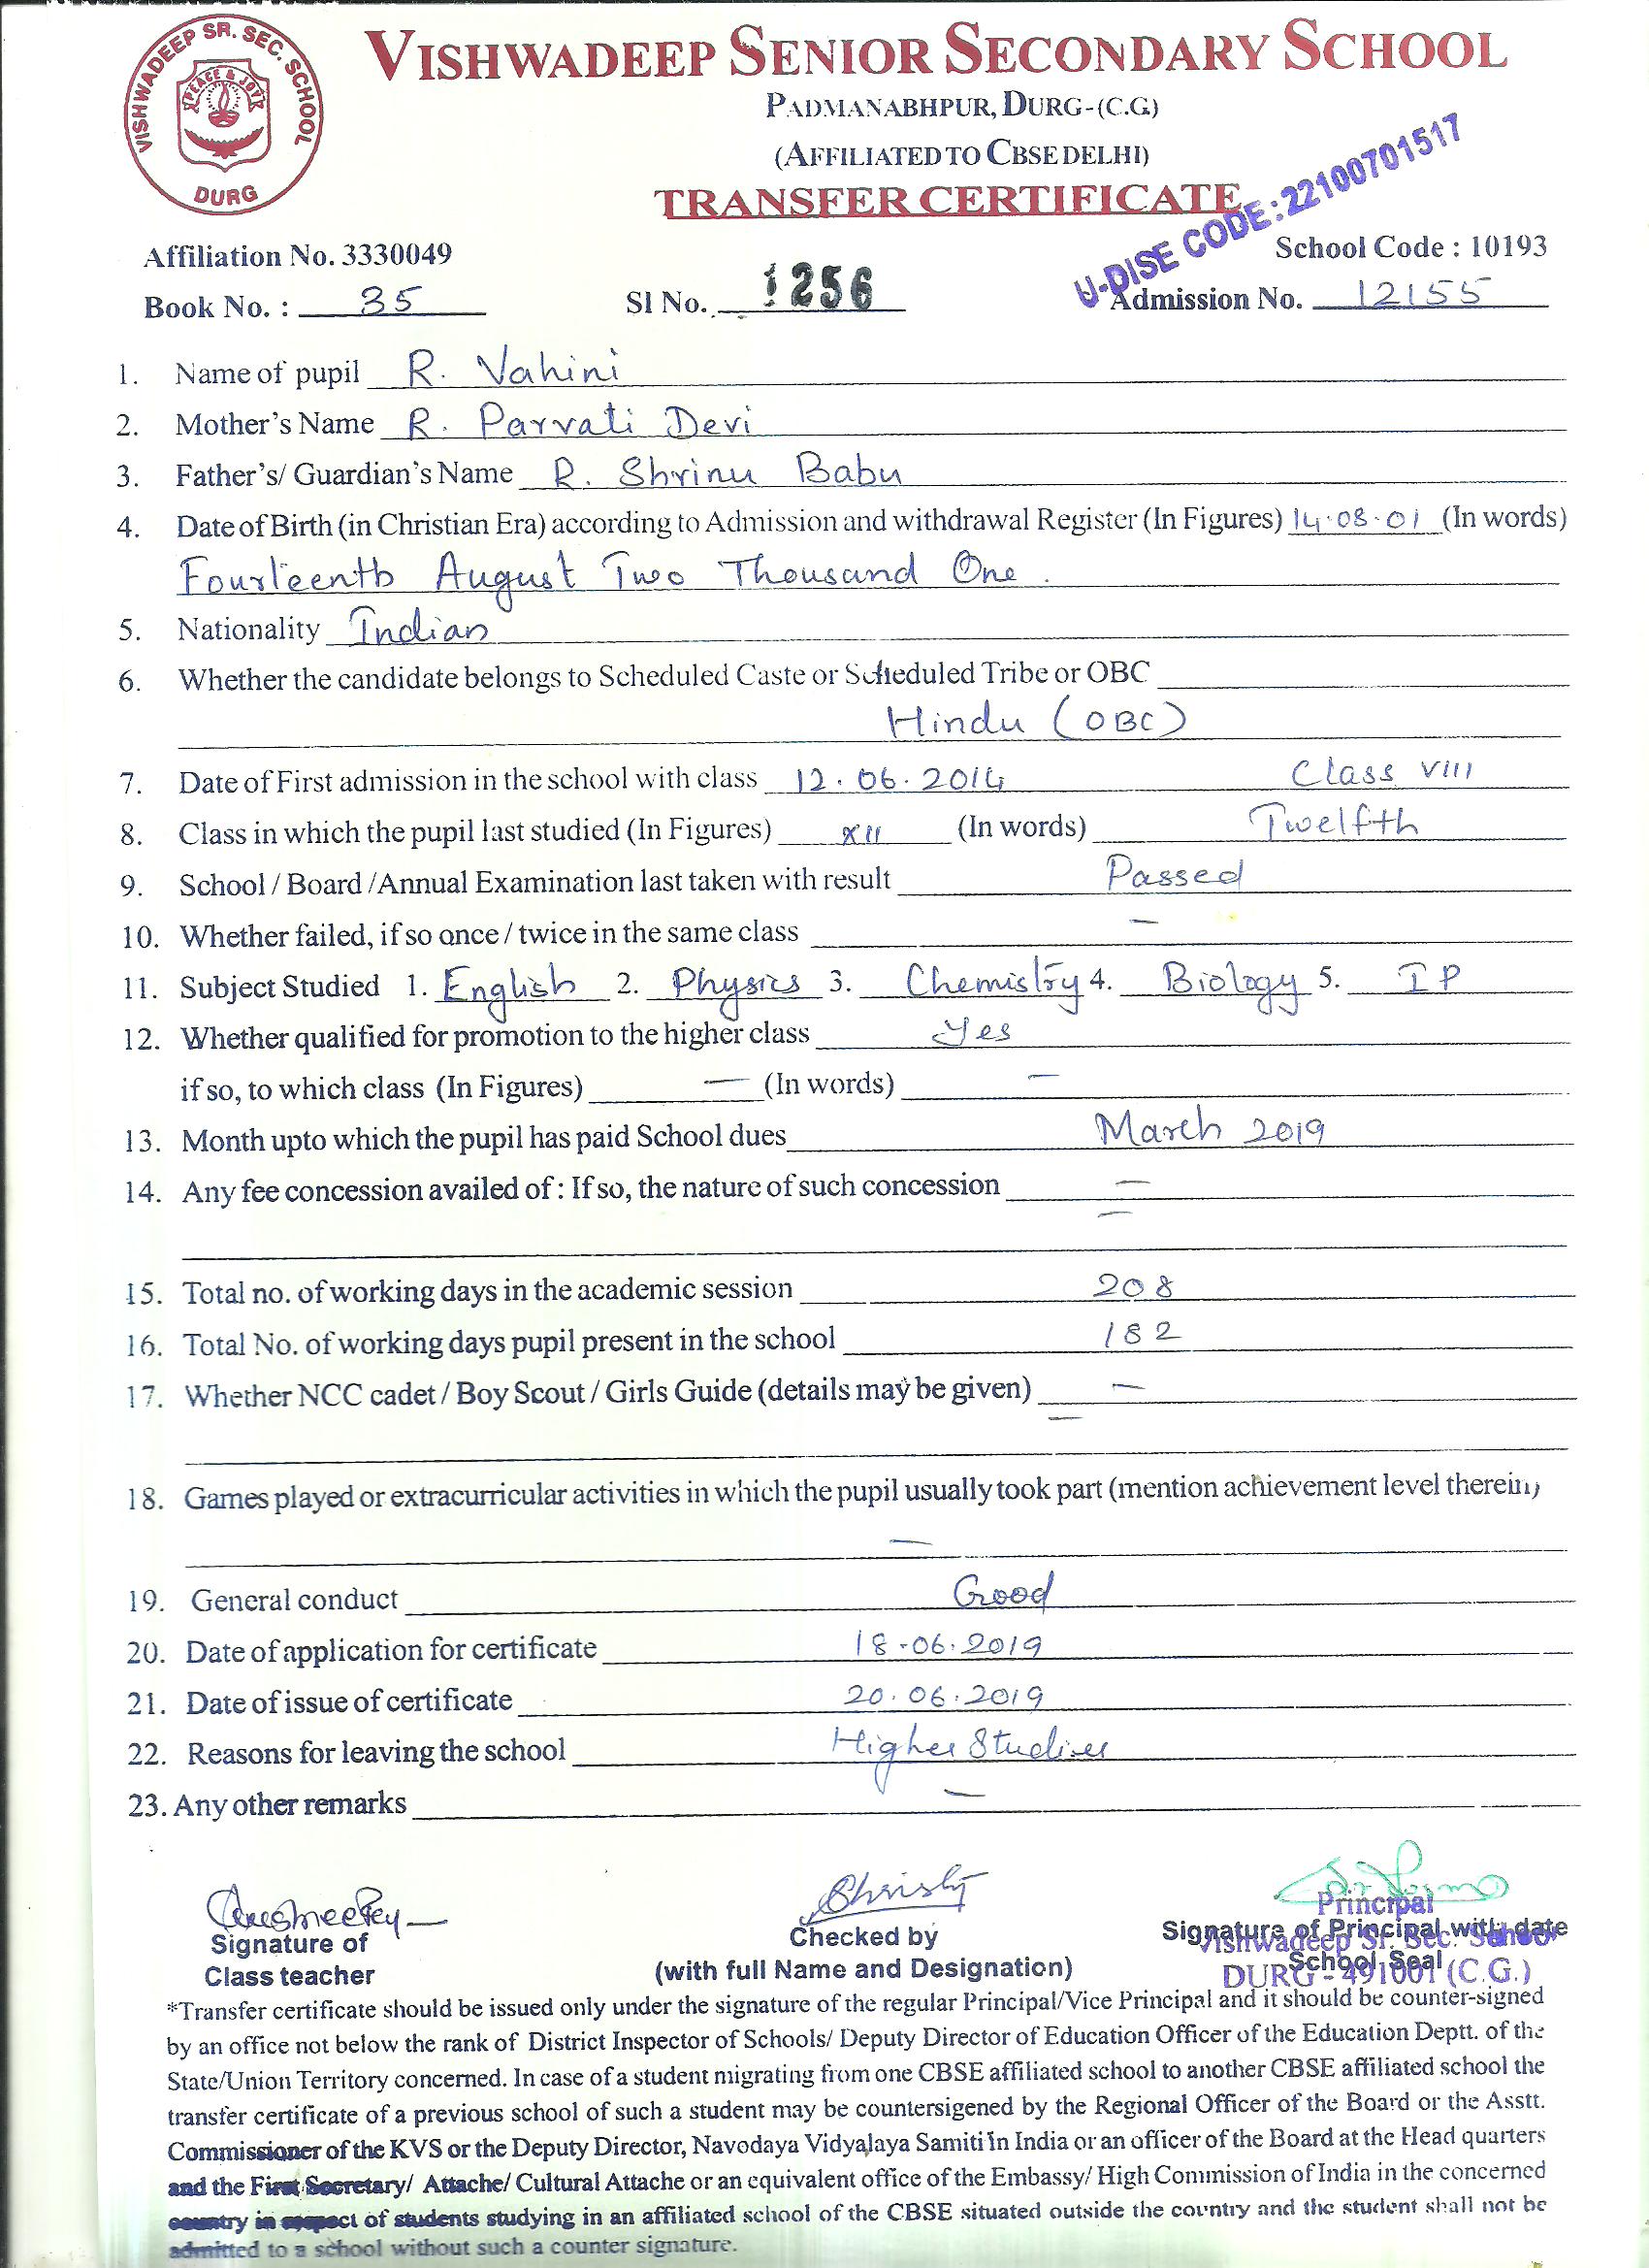 VISHWADEEP SR. SEC. SCHOOL
PEACE & JOY
DURG
VISHWADEEP SENIOR SECONDARY SCHOOL
PADMANABHPUR, DURG-(C.G.)
(AFFILIATED TO CBSE DELHI)
TRANSFER CERTIFICATE
U-DISE CODE:22100701517
Affiliation No. 3330049 School Code : 10193
Book No. : 35 Sl No. 1256 Admission No. 12155
1. Name of pupil R. Vahini
2. Mother's Name R. Parvati Devi
3. Father's/ Guardian's Name R. Shrinu Babu
4. Date of Birth (in Christian Era) according to Admission and withdrawal Register (In Figures) 14.08.01 (In words)
Fourteenth August Two Thousand One.
5. Nationality Indian
6. Whether the candidate belongs to Scheduled Caste or Scheduled Tribe or OBC
Hindu (OBC)
7. Date of First admission in the school with class 12.06.2014 Class VIII
8. Class in which the pupil last studied (In Figures) XII (In words) Twelfth
9. School / Board /Annual Examination last taken with result Passed
10. Whether failed, if so once / twice in the same class —
11. Subject Studied 1. English 2. Physics 3. Chemistry 4. Biology 5. IP
12. Whether qualified for promotion to the higher class Yes
if so, to which class (In Figures) — (In words) —
13. Month upto which the pupil has paid School dues March 2019
14. Any fee concession availed of : If so, the nature of such concession —
—
15. Total no. of working days in the academic session 208
16. Total No. of working days pupil present in the school 182
17. Whether NCC cadet / Boy Scout / Girls Guide (details may be given) —
—
18. Games played or extracurricular activities in which the pupil usually took part (mention achievement level therein)
—
19. General conduct Good
20. Date of application for certificate 18-06.2019
21. Date of issue of certificate 20.06.2019
22. Reasons for leaving the school Higher Studies
23. Any other remarks —
Christy
Principal
Signature of Checked by Signature of Principal with date
Vishwadeep Sr. Sec. School
Class teacher (with full Name and Designation) School Seal
DURG - 491001 (C.G.)
*Transfer certificate should be issued only under the signature of the regular Principal/Vice Principal and it should be counter-signed
by an office not below the rank of District Inspector of Schools/ Deputy Director of Education Officer of the Education Deptt. of the
State/Union Territory concerned. In case of a student migrating from one CBSE affiliated school to another CBSE affiliated school the
transfer certificate of a previous school of such a student may be countersigened by the Regional Officer of the Board or the Asstt.
Commissioner of the KVS or the Deputy Director, Navodaya Vidyalaya Samiti in India or an officer of the Board at the Head quarters
and the First Secretary/ Attache/ Cultural Attache or an equivalent office of the Embassy/ High Commission of India in the concerned
country in respect of students studying in an affiliated school of the CBSE situated outside the country and the student shall not be
admitted to a school without such a counter signature.